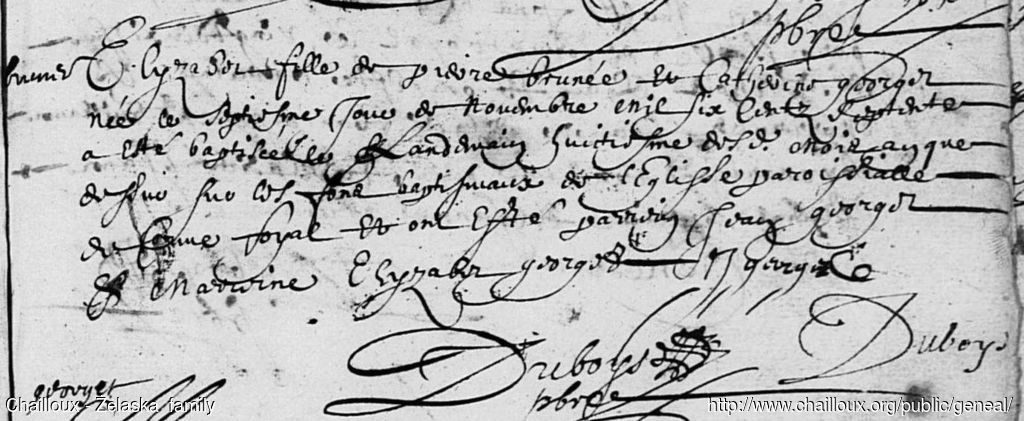 pbre
brunee Elyzabet fille de pierre brunée et Catherine georget
née le septiesme Jour de Novembre mil six Centz septente
a esté baptiseé le Landemain huictiesme desd. mois an que
dessus sur les fons baptismaux de l'Eglisse paroissialle
de loyal et ont esté parrein Jean georget
et Marreine Elyzabet georget georget
Duboys Duboys
pbre
georget
Chailloux - Zelaska family http://www.chailloux.org/public/geneal/